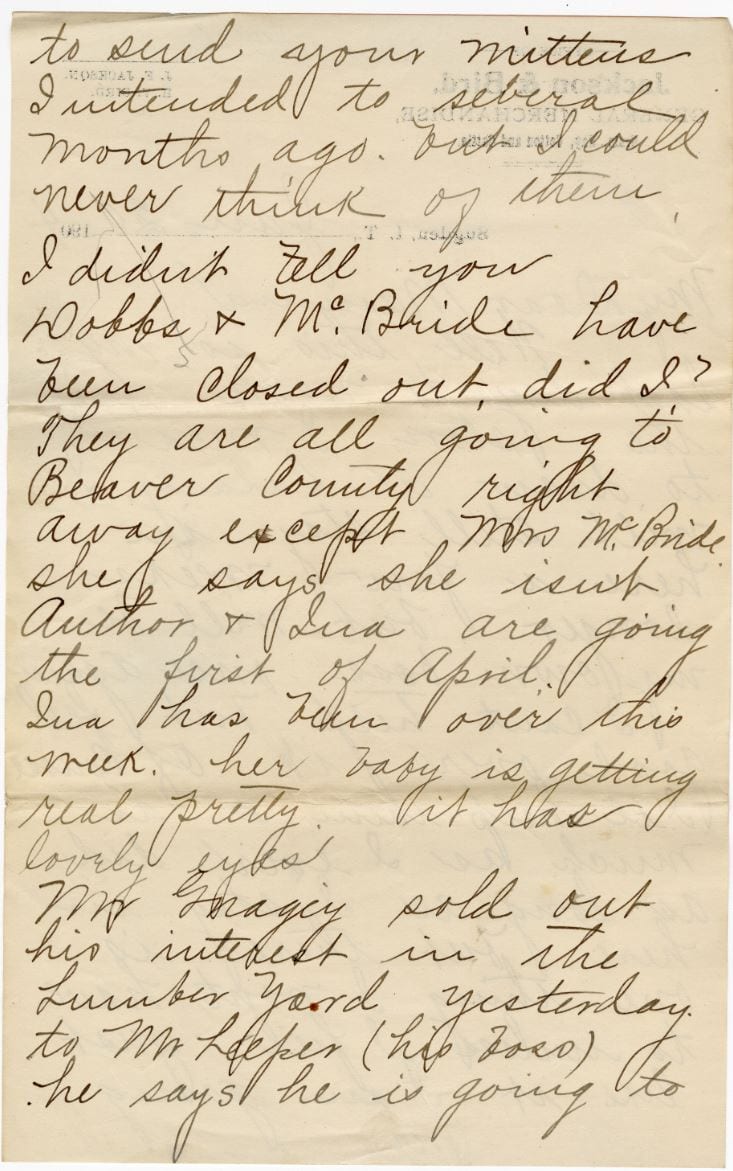 to send your mittens
I intended to several
months ago. but I could
never think of them.
I didn't tell you
Dobbs & Mc. Bride have
been closed out, did I?
They are all going to
Beaver County right
away except Mrs Mc. Bride.
she says she isn't
Author & Ina are going
the first of April.
Ina has been over this
week. her baby is getting
real pretty. it has
lovely eyes
Mr Gragey sold out
his interest in the
Lumber Yard yesterday.
to Mr Leeper (his boss)
he says he is going to